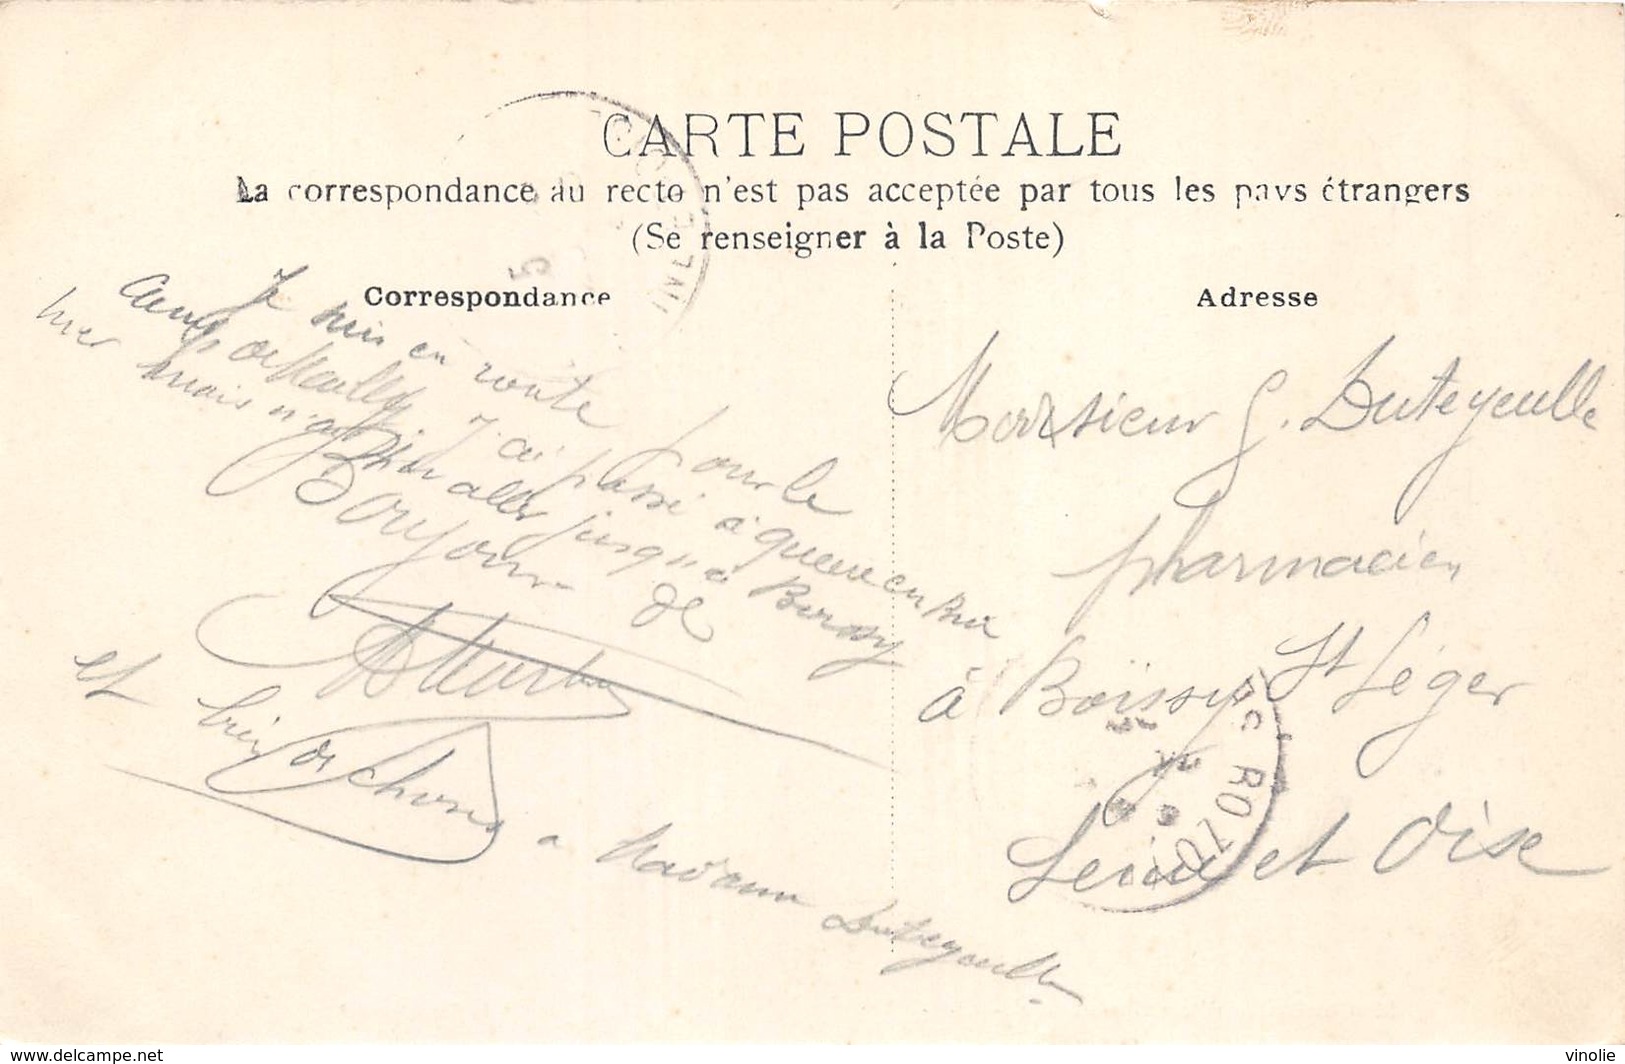 CARTE POSTALE
La correspondance au recto n'est pas acceptée par tous les pays étrangers
(Se renseigner à la Poste)
Correspondance
Je suis en route pour le
camp de Mailly. J'ai passé à queue en Brie
hier mais n'ai pu aller jusqu'à Boissy
Bonjour de
et bien de choses
a Madame Duteyeulle
Adresse
Monsieur G. Duteyeulle
pharmacien
à Boissy St Léger
Seine et Oise
ROZOY
www.delcampe.net
vinolie